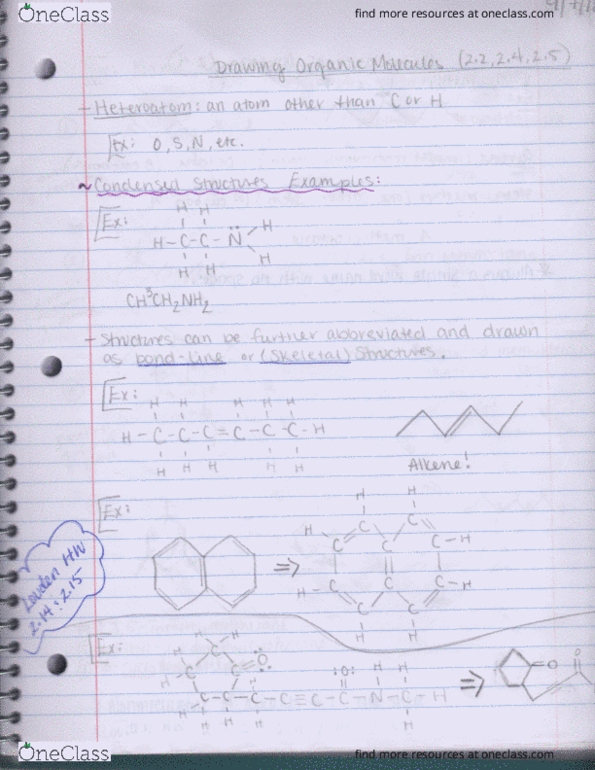 OneClass
find more resources at oneclass.com
Drawing Organic Molecules (2.2, 2.4, 2.5)
- Heteroatom: an atom other than C or H
Ex: O, S, N, etc.
~ Condensed Structures Examples:
Ex:
H H
H-C-C-N H
H H H
CH3CH2NH2
- Structures can be further abbreviated and drawn
as bond-line or (Skeletal) Structures.
Ex:
H H H H H
H-C-C-C=C-C-C-H
H H H H H
Alkene!
Ex:
H H
H C C
C C C-H
⇒
H-C C C-H
C C
H H
Louden HW
2.14 : 2.15
Ex:
H H
H C
C C=O
:O: H H
C-C-C-C≡C-C-N-C-H
⇒
H H H H
O
O
OneClass
find more resources at oneclass.com